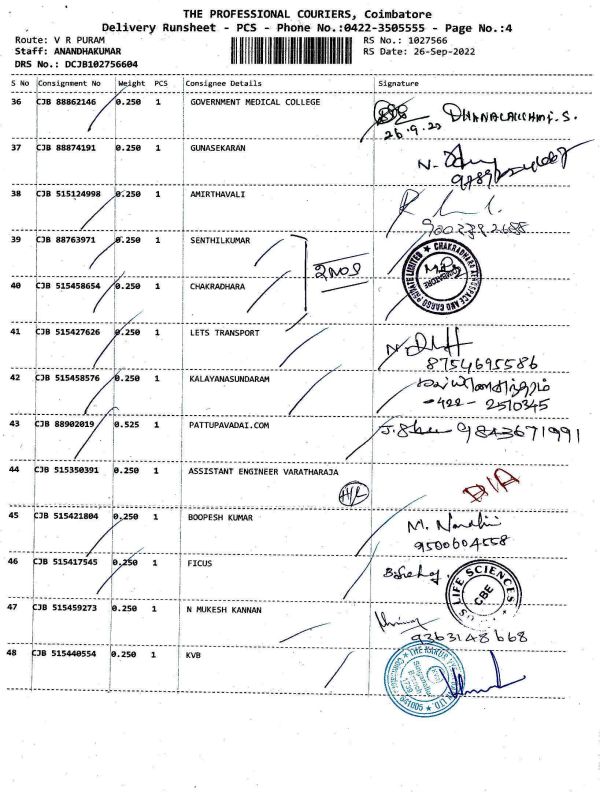 THE PROFESSIONAL COURIERS, Coimbatore
Delivery Runsheet - PCS - Phone No.:0422-3505555 - Page No.:4
Route: V R PURAM RS No.: 1027566
Staff: ANANDHAKUMAR RS Date: 26-Sep-2022
DRS No.: DCJB102756604
S No Consignment No Weight PCS Consignee Details Signature
36 CJB 88862146 0.250 1 GOVERNMENT MEDICAL COLLEGE DHANALAKSHMI.S.
26.9.22
37 CJB 88874191 0.250 1 GUNASEKARAN
38 CJB 515124998 0.250 1 AMIRTHAVALI
39 CJB 88763971 0.250 1 SENTHILKUMAR
2NOS
CHAKRADHARA AEROSPACE AND CARGO PRIVATE LIMITED
COIMBATORE
40 CJB 515458654 0.250 1 CHAKRADHARA
41 CJB 515427626 0.250 1 LETS TRANSPORT
8754695586
42 CJB 515458576 0.250 1 KALAYANASUNDARAM
-422 - 2510345
43 CJB 88902019 0.525 1 PATTUPAVADAI.COM 9843671991
44 CJB 515350391 0.250 1 ASSISTANT ENGINEER VARATHARAJA
D/A
45 CJB 515421804 0.250 1 BOOPESH KUMAR M. Nandhini
9500604558
46 CJB 515417545 0.250 1 FICUS
LIFE SCIENCES
CBE
47 CJB 515459273 0.250 1 N MUKESH KANNAN
9363148668
48 CJB 515440554 0.250 1 KVB